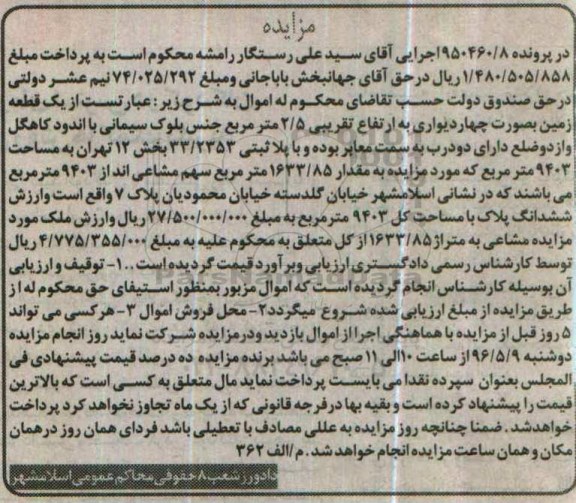 مزایده
در پرونده ۹۵۰۴۶۰/۸ اجرایی آقای سید علی رستگار رامشه محکوم است به پرداخت مبلغ
۱/۴۸۰/۵۰۵/۸۵۸ ریال درحق آقای جهانبخش باباجانی ومبلغ ۷۴/۰۲۵/۲۹۲ نیم عشر دولتی
درحق صندوق دولت حسب تقاضای محکوم له اموال به شرح زیر : عبارتست از یک قطعه
زمین بصورت چهاردیواری به ارتفاع تقریبی ۲/۵ متر مربع جنس بلوک سیمانی با اندود کاهگل
وازدوضلع دارای دودرب به سمت معابر بوده و با پلا ثبتی ۳۳/۲۳۵۳ بخش ۱۲ تهران به مساحت
۹۴۰۳ متر مربع که مورد مزایده به مقدار ۱۶۳۳/۸۵ متر مربع سهم مشاعی اند از ۹۴۰۳ مترمربع
می باشند که در نشانی اسلامشهر خیابان گلدسته خیابان محمودیان پلاک ۷ واقع است وارزش
ششدانگ پلاک با مساحت کل ۹۴۰۳ مترمربع به مبلغ ۲۷/۵۰۰/۰۰۰/۰۰۰ ریال وارزش ملک مورد
مزایده مشاعی به متراژ ۱۶۳۳/۸۵ از کل متعلق به محکوم علیه به مبلغ ۴/۷۷۵/۳۵۵/۰۰۰ ریال
توسط کارشناس رسمی دادگستری ارزیابی وبرآورد قیمت گردیده است..۱- توقیف و ارزیابی
آن بوسیله کارشناس انجام گردیده است که اموال مزبور بمنظور استیفای حق محکوم له از
طریق مزایده از مبلغ ارزیابی شده شروع میگردد۲- محل فروش اموال ۳- هرکسی می تواند
۵ روز قبل از مزایده با هماهنگی اجرا از اموال بازدید ودرمزایده شرکت نماید روز انجام مزایده
دوشنبه ۹۶/۵/۹ از ساعت ۱۰الی ۱۱ صبح می باشد برنده مزایده ده درصد قیمت پیشنهادی فی
المجلس بعنوان سپرده نقدا می بایست پرداخت نماید مال متعلق به کسی است که بالاترین
قیمت را پیشنهاد کرده است و بقیه بها درفرجه قانونی که از یک ماه تجاوز نخواهد کرد پرداخت
خواهدشد . ضمنا چنانچه روز مزایده به عللی مصادف با تعطیلی باشد فردای همان روز درهمان
مکان و همان ساعت مزایده انجام خواهد شد . م/الف ۳۶۲
دادورز شعبه ۸ حقوقی محاکم عمومی اسلامشهر